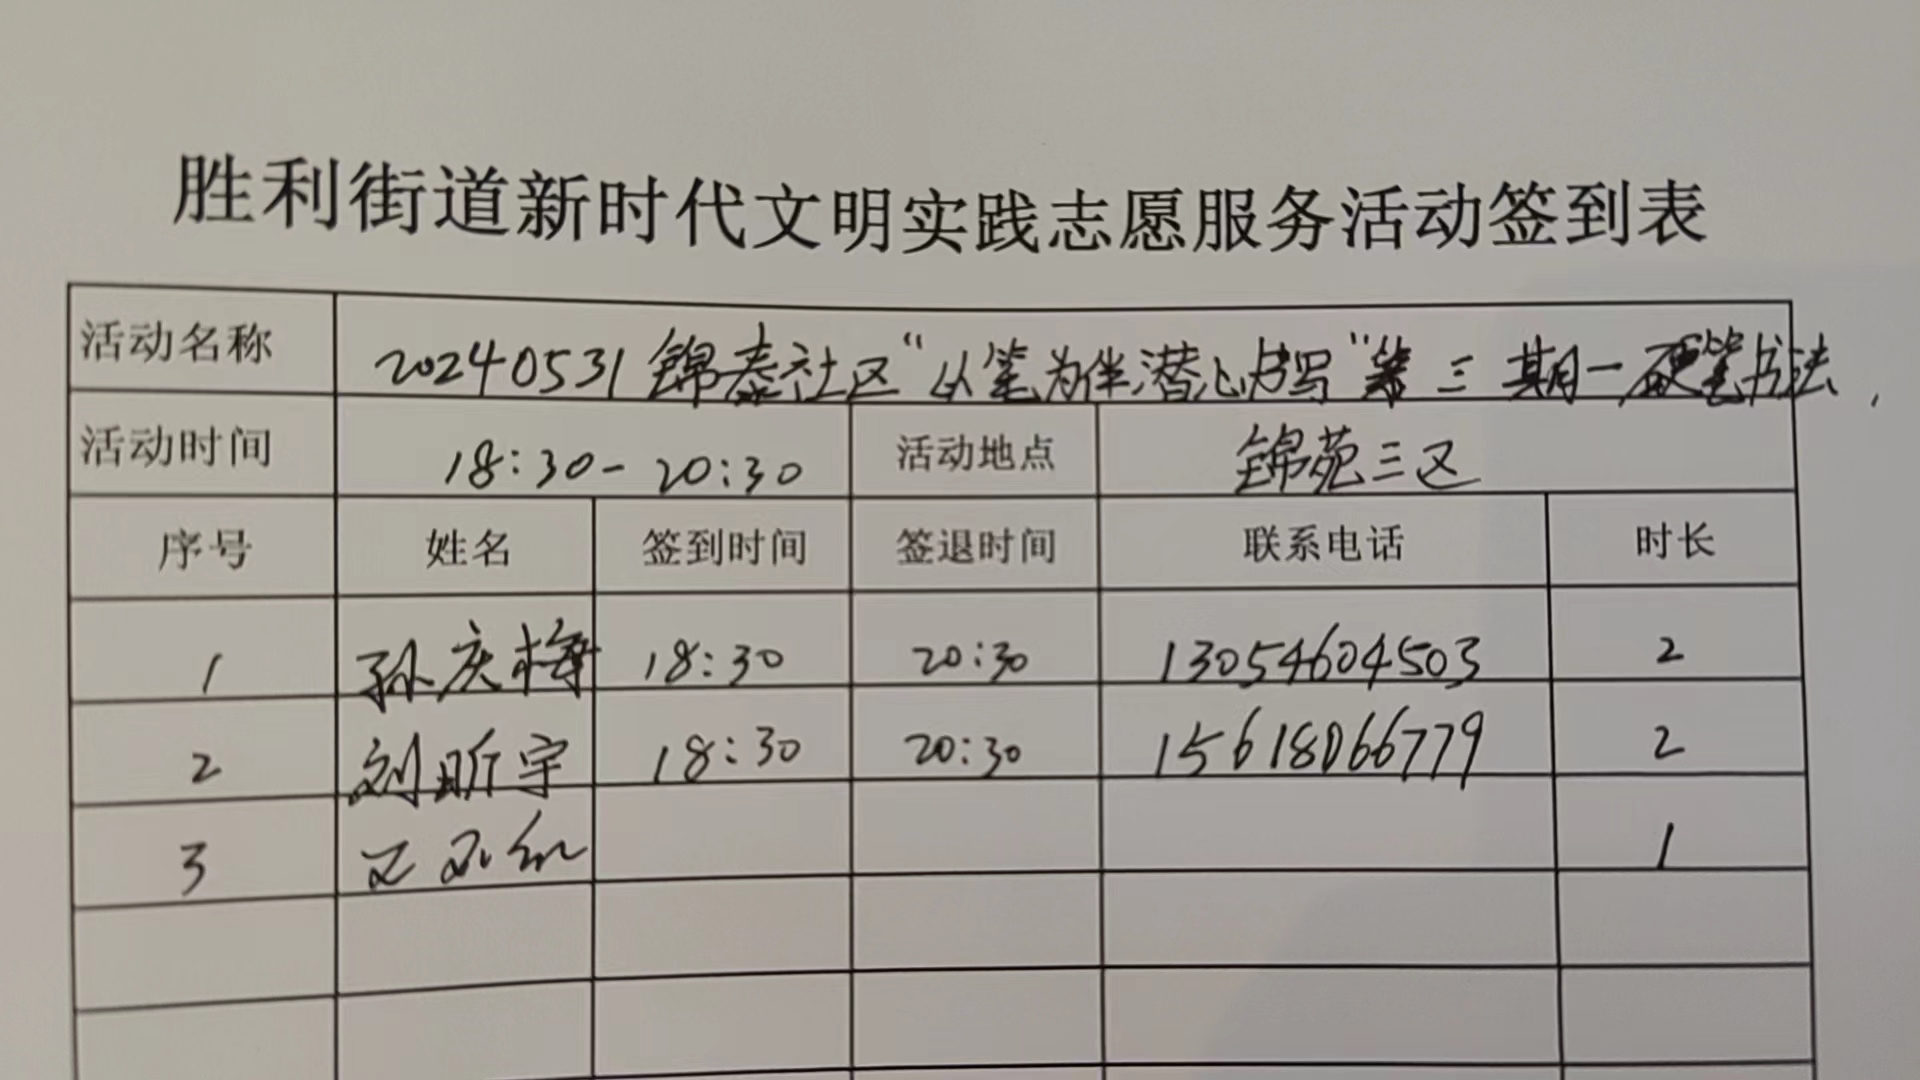 胜利街道新时代文明实践志愿服务活动签到表
活动名称 20240531锦泰社区“以笔为伴潜心书写”第三期一硬笔书法
活动时间 18:30-20:30 活动地点 锦苑三区
序号 姓名 签到时间 签退时间 联系电话 时长
1 孙庆梅 18:30 20:30 13054604503 2
2 刘昕宇 18:30 20:30 15618066779 2
3 1